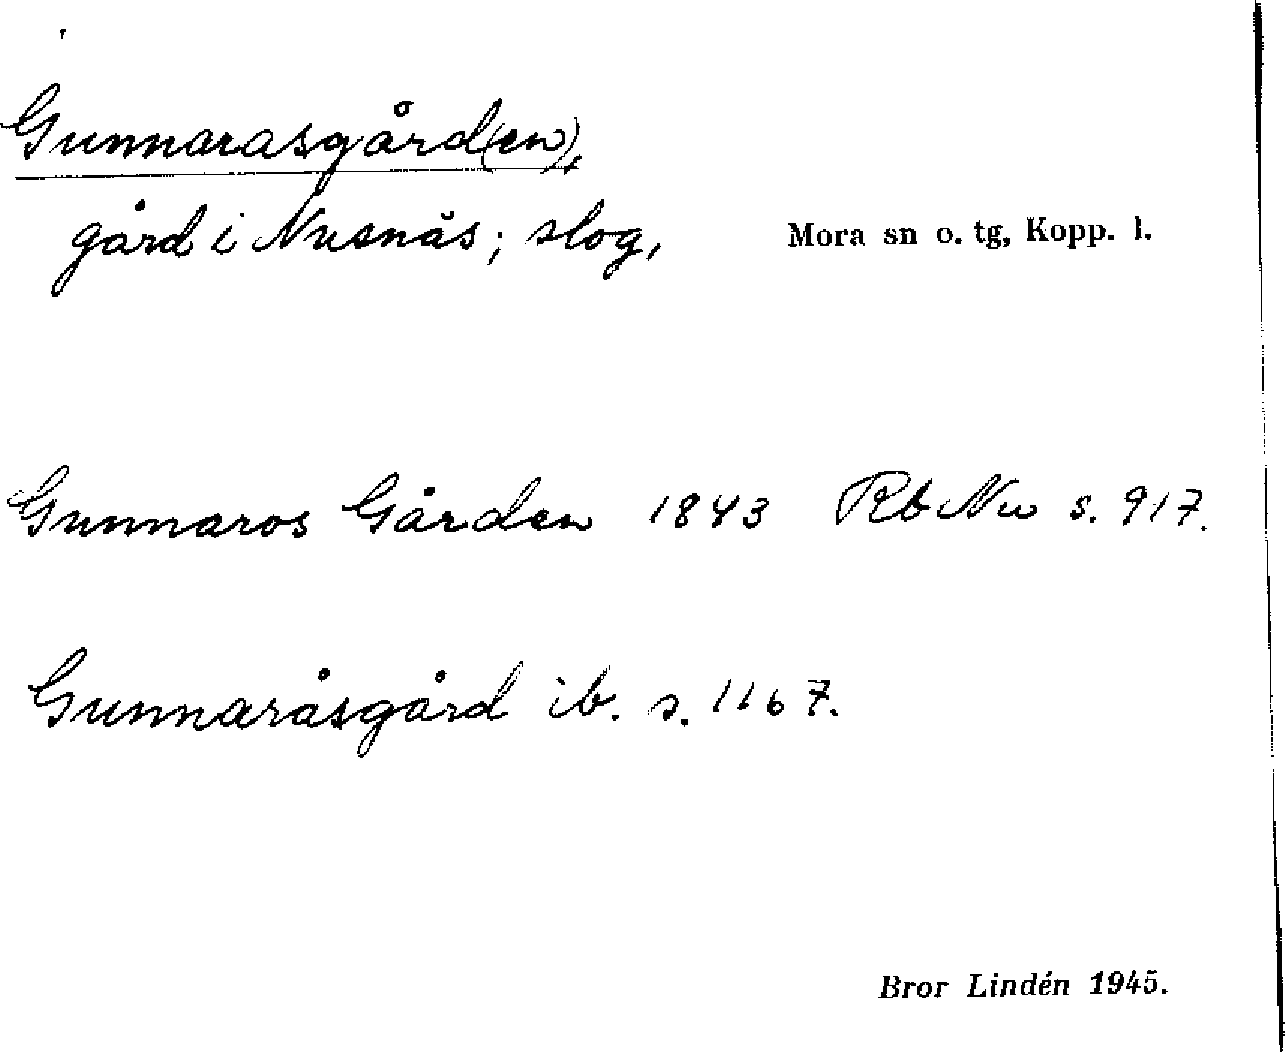 Gunnarasgård(en),
gård i Nusnäs; slog, Mora sn o. tg, Kopp. l.
Gunnaros Gården 1843 Rb Nu s. 917.
Gunnaråsgård ib. s. 1167.
Bror Lindén 1945.